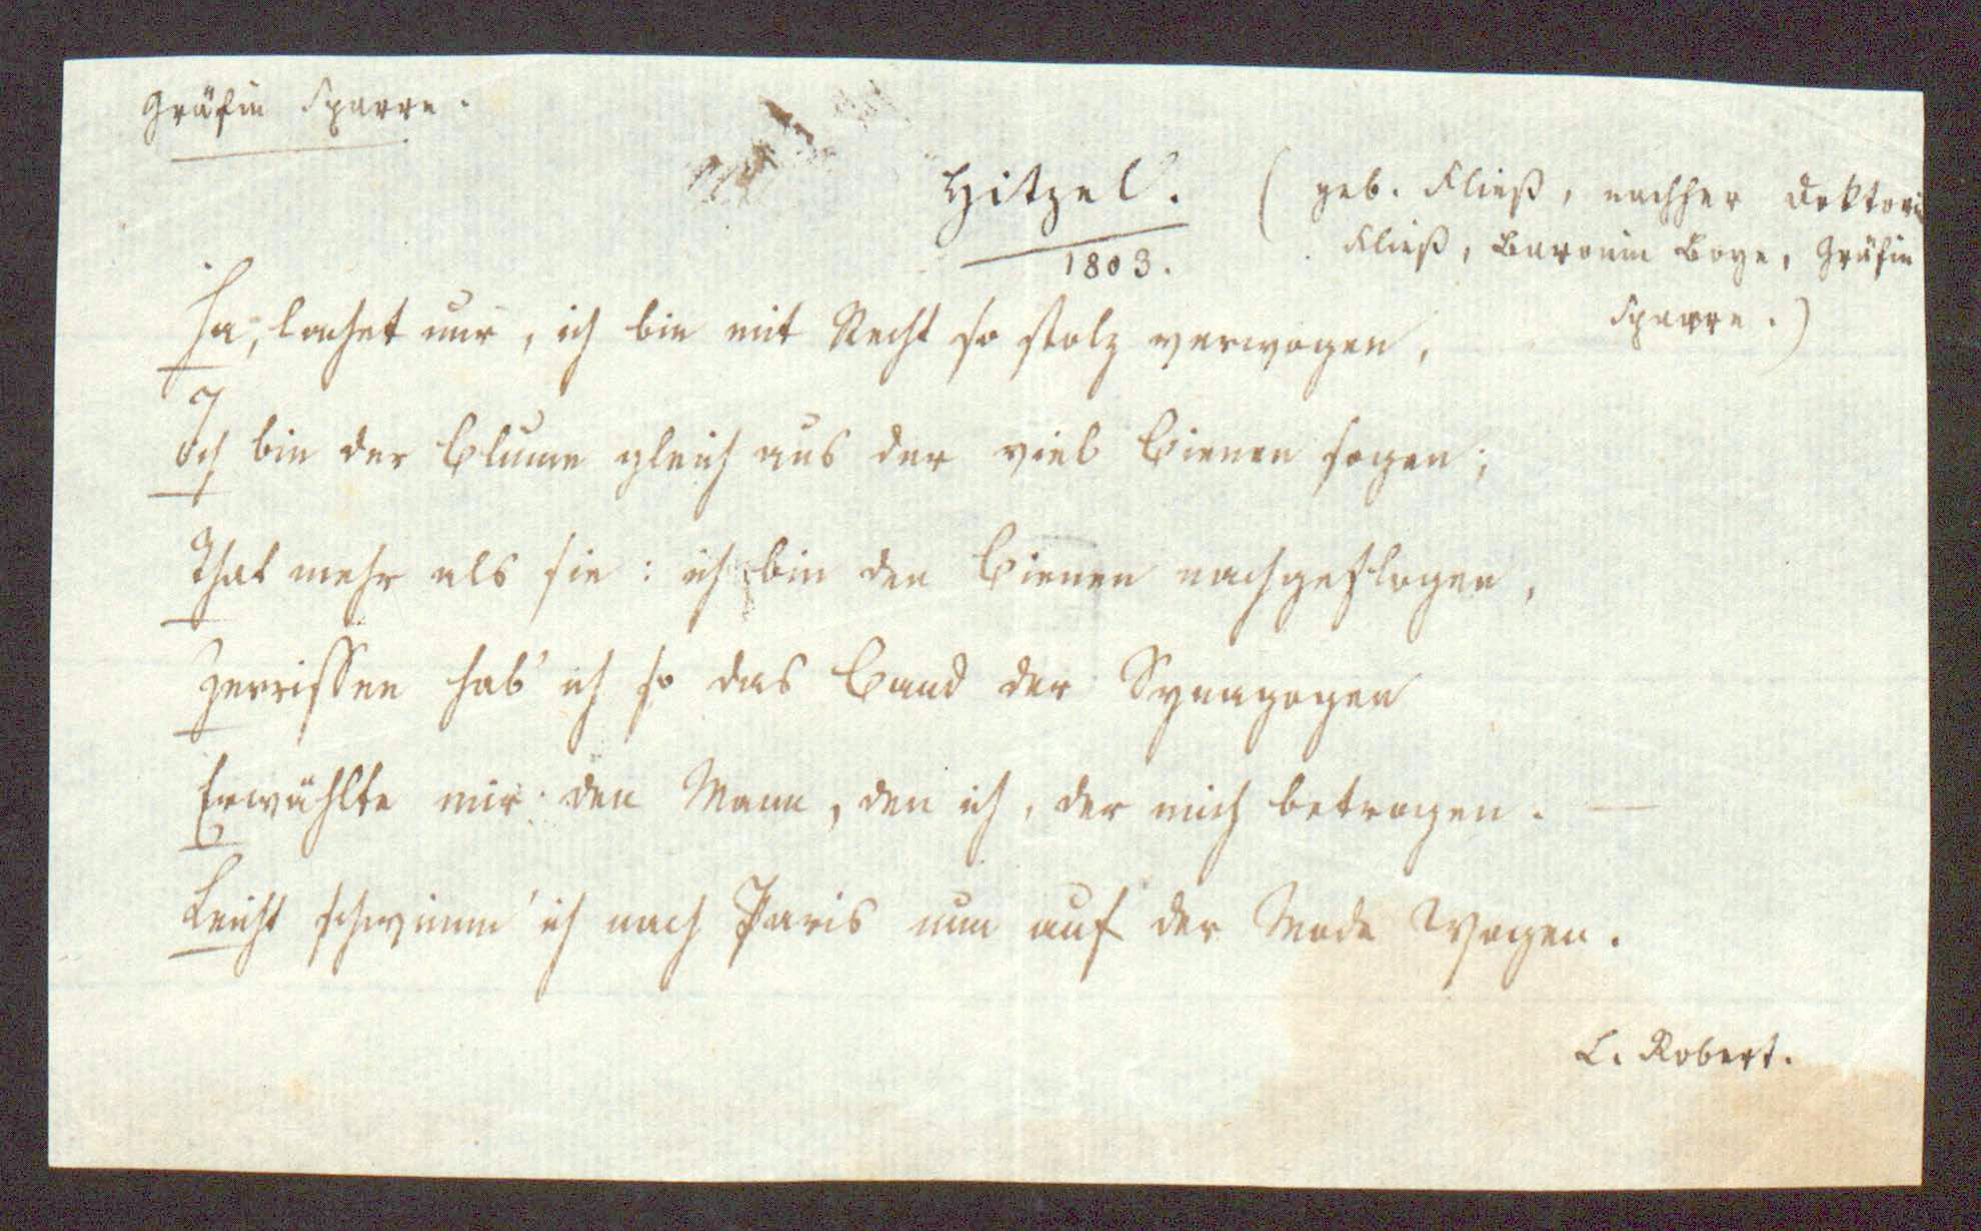 Gräfin Sparre.
Hitzel. (geb. Fließ, nachher Doktorin
Fließ, Baronin Boye, Gräfin
1803.
Sparre.)
Ha, lachet nur, ich bin mit Recht so stolz verwogen,
Ich bin der Blume gleich aus der viel Bienen sogen;
That mehr als sie: ich bin den Bienen nachgeflogen,
Zerrissen hab' ich so das Band der Synagogen
Erwählte mir den Mann, den ich, der mich betrogen. —
Leicht schwimm' ich nach Paris nun auf der Mode Wogen.
L. Robert.